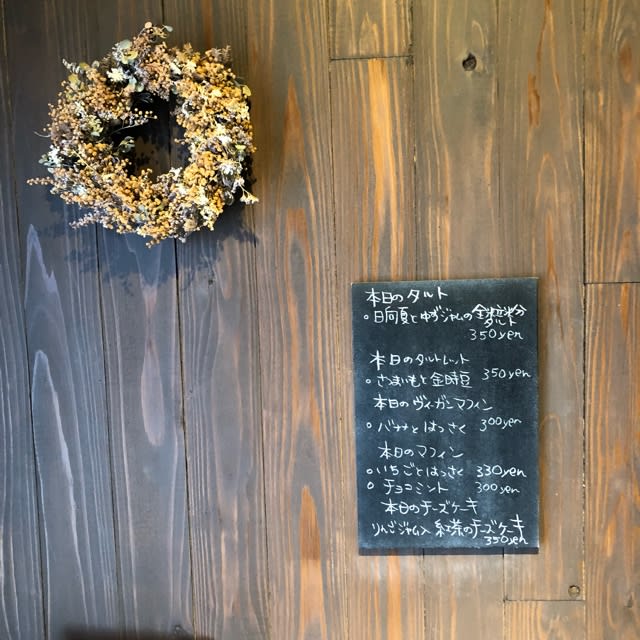 本日のタルト
○日向夏とゆずジャムの全粒粉
タルト
350yen
本日のタルトレット
○さつまいもと金時豆 350yen
本日のヴィーガンマフィン
○バナナとはっさく 300yen
本日のマフィン
○いちごとはっさく 330yen
○チョコミント 300yen
本日のチーズケーキ
りんごジャム入 紅茶のチーズケーキ
350yen